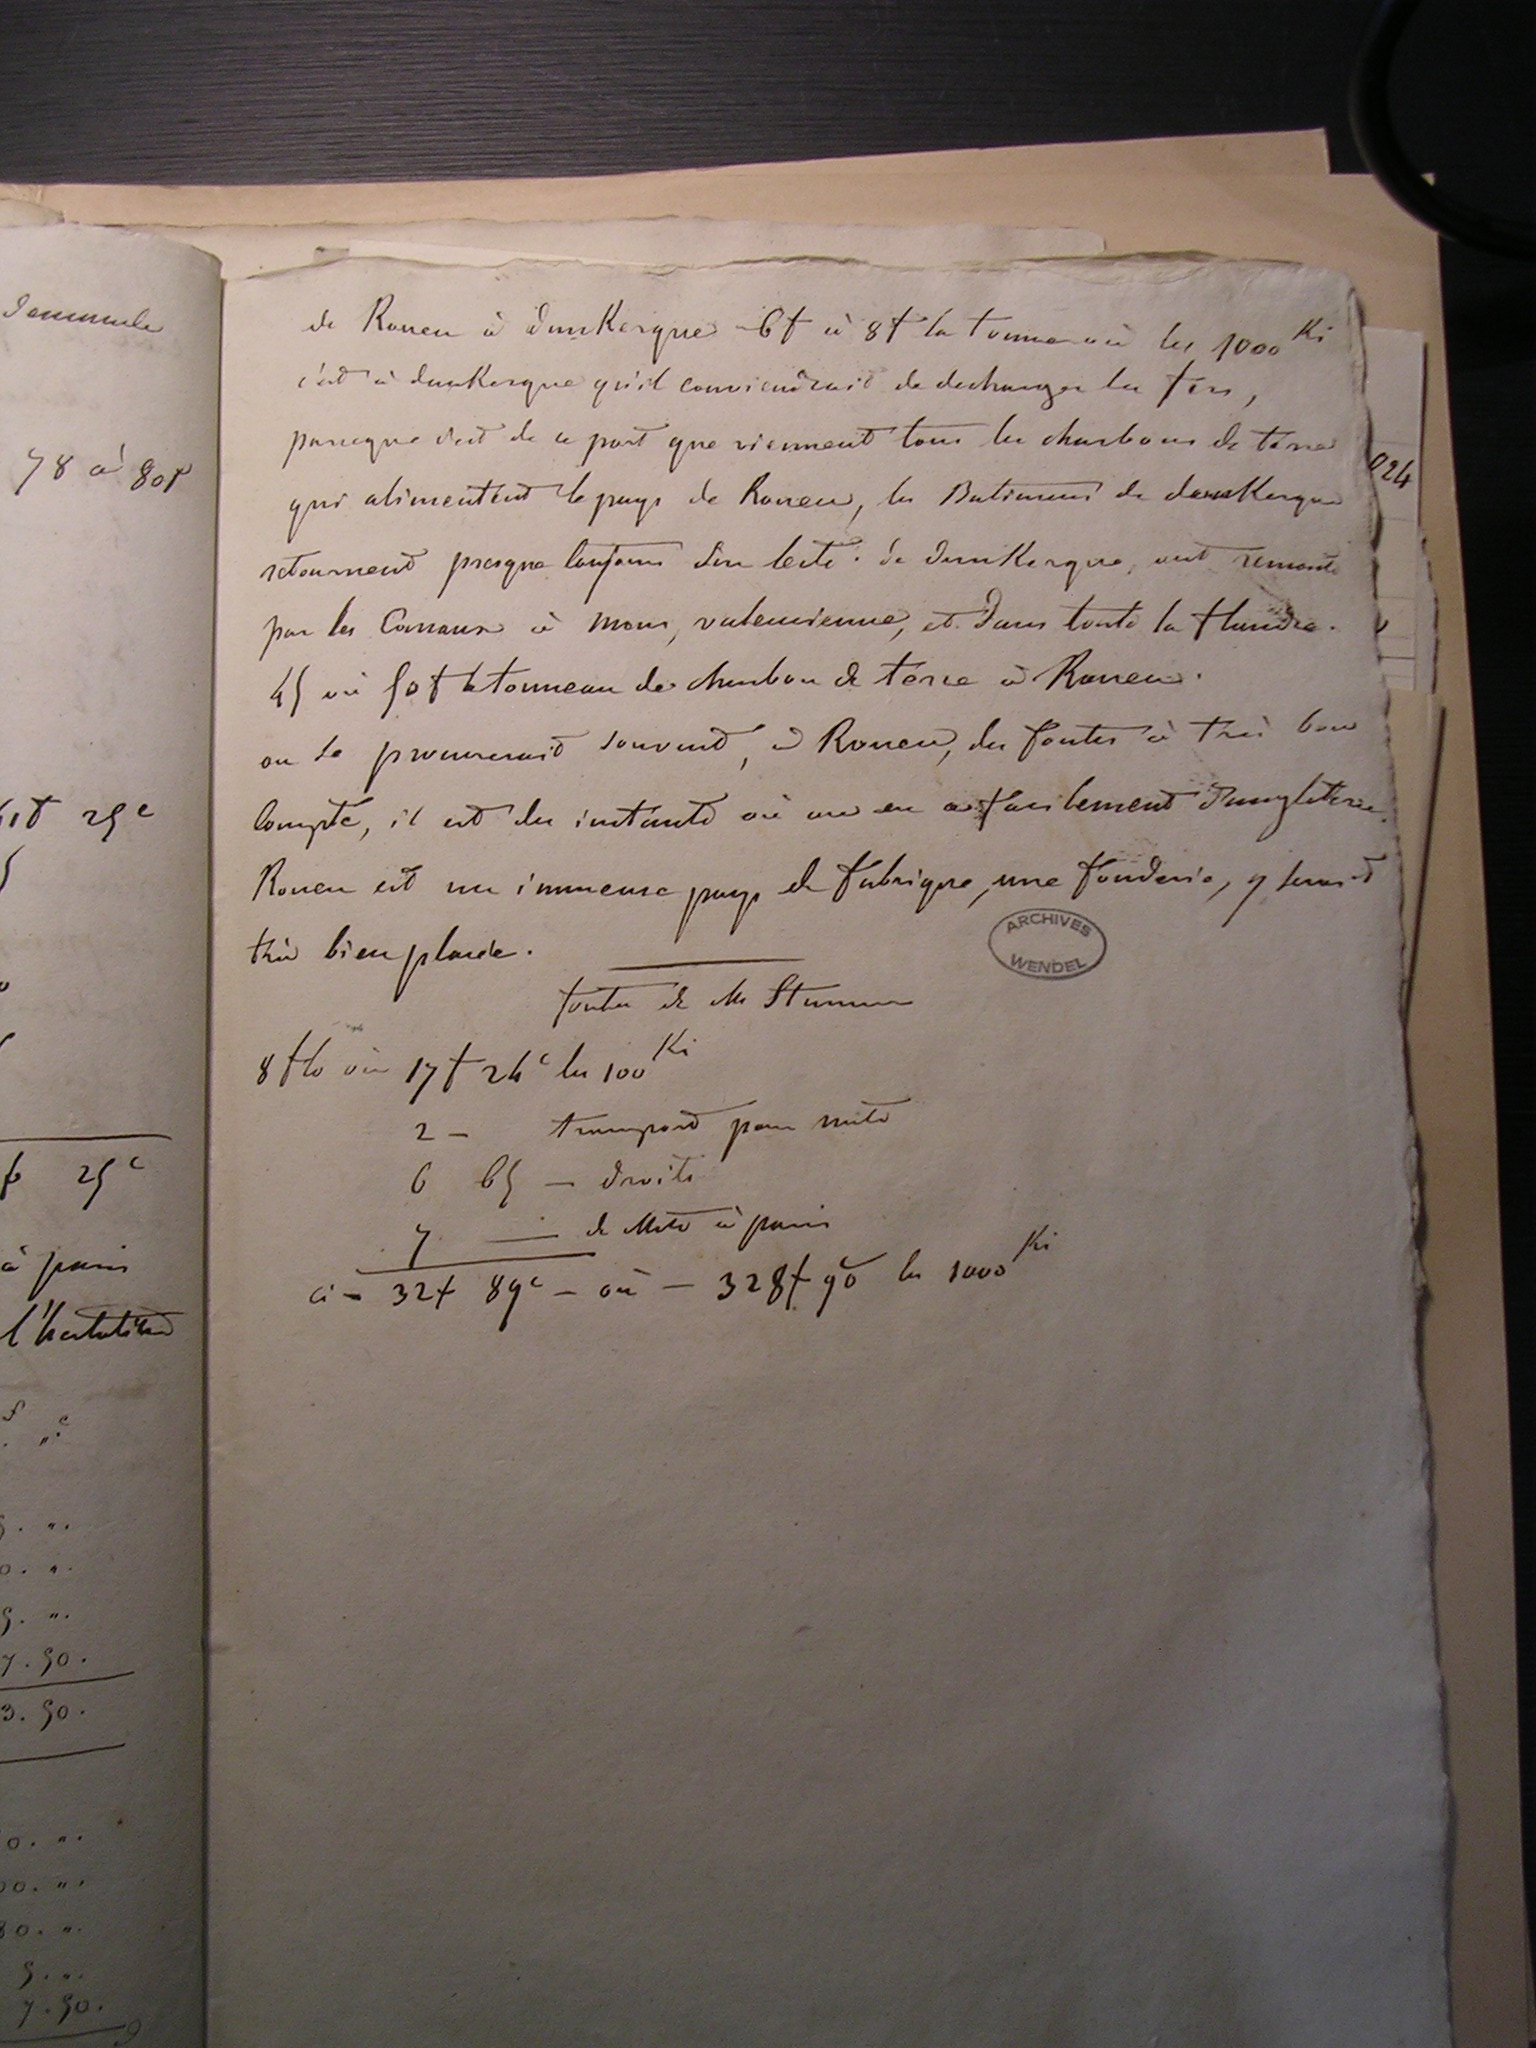 Demande
78 à 80f
61f 25c
f 25c
à paris
f c
. ".
5. ".
0. ".
5. ".
7. 50.
3. 50.
0. ".
00. ".
80. ".
5. ".
7. 50.
de Rouen à dunKerque 6f à 8f la tonne ou les 1000 Ki
c'est à dunKerque qu'il conviendrait de decharger les fers,
parceque c'est de ce port que viennent tous les charbons de terre
qui alimentent le pays de Rouen, les Batimens de dunKerque
retournent presque toujours sur leste. de dunKerque, ont remonte
par les Canaux à mons, valencienne, et dans toute la flandre.
45 ou 50f le tonneau de charbon de terre à Rouen.
on se procurerait souvent, à Rouen, des fontes à très bon
Compte, il est des instants où on en a facilement d'angleterre.
Rouen est un immense pays de fabrique, une fonderie, y serait
très bien placée.
ARCHIVES
WENDEL
fontes de Mr Stumm
8 flo ou 17f 24c les 100 Ki
2 - transport pour metz
6 65 - droits
7 - de Metz à paris
ci - 32f 89c - ou - 328f 90 les 1000 Ki
024